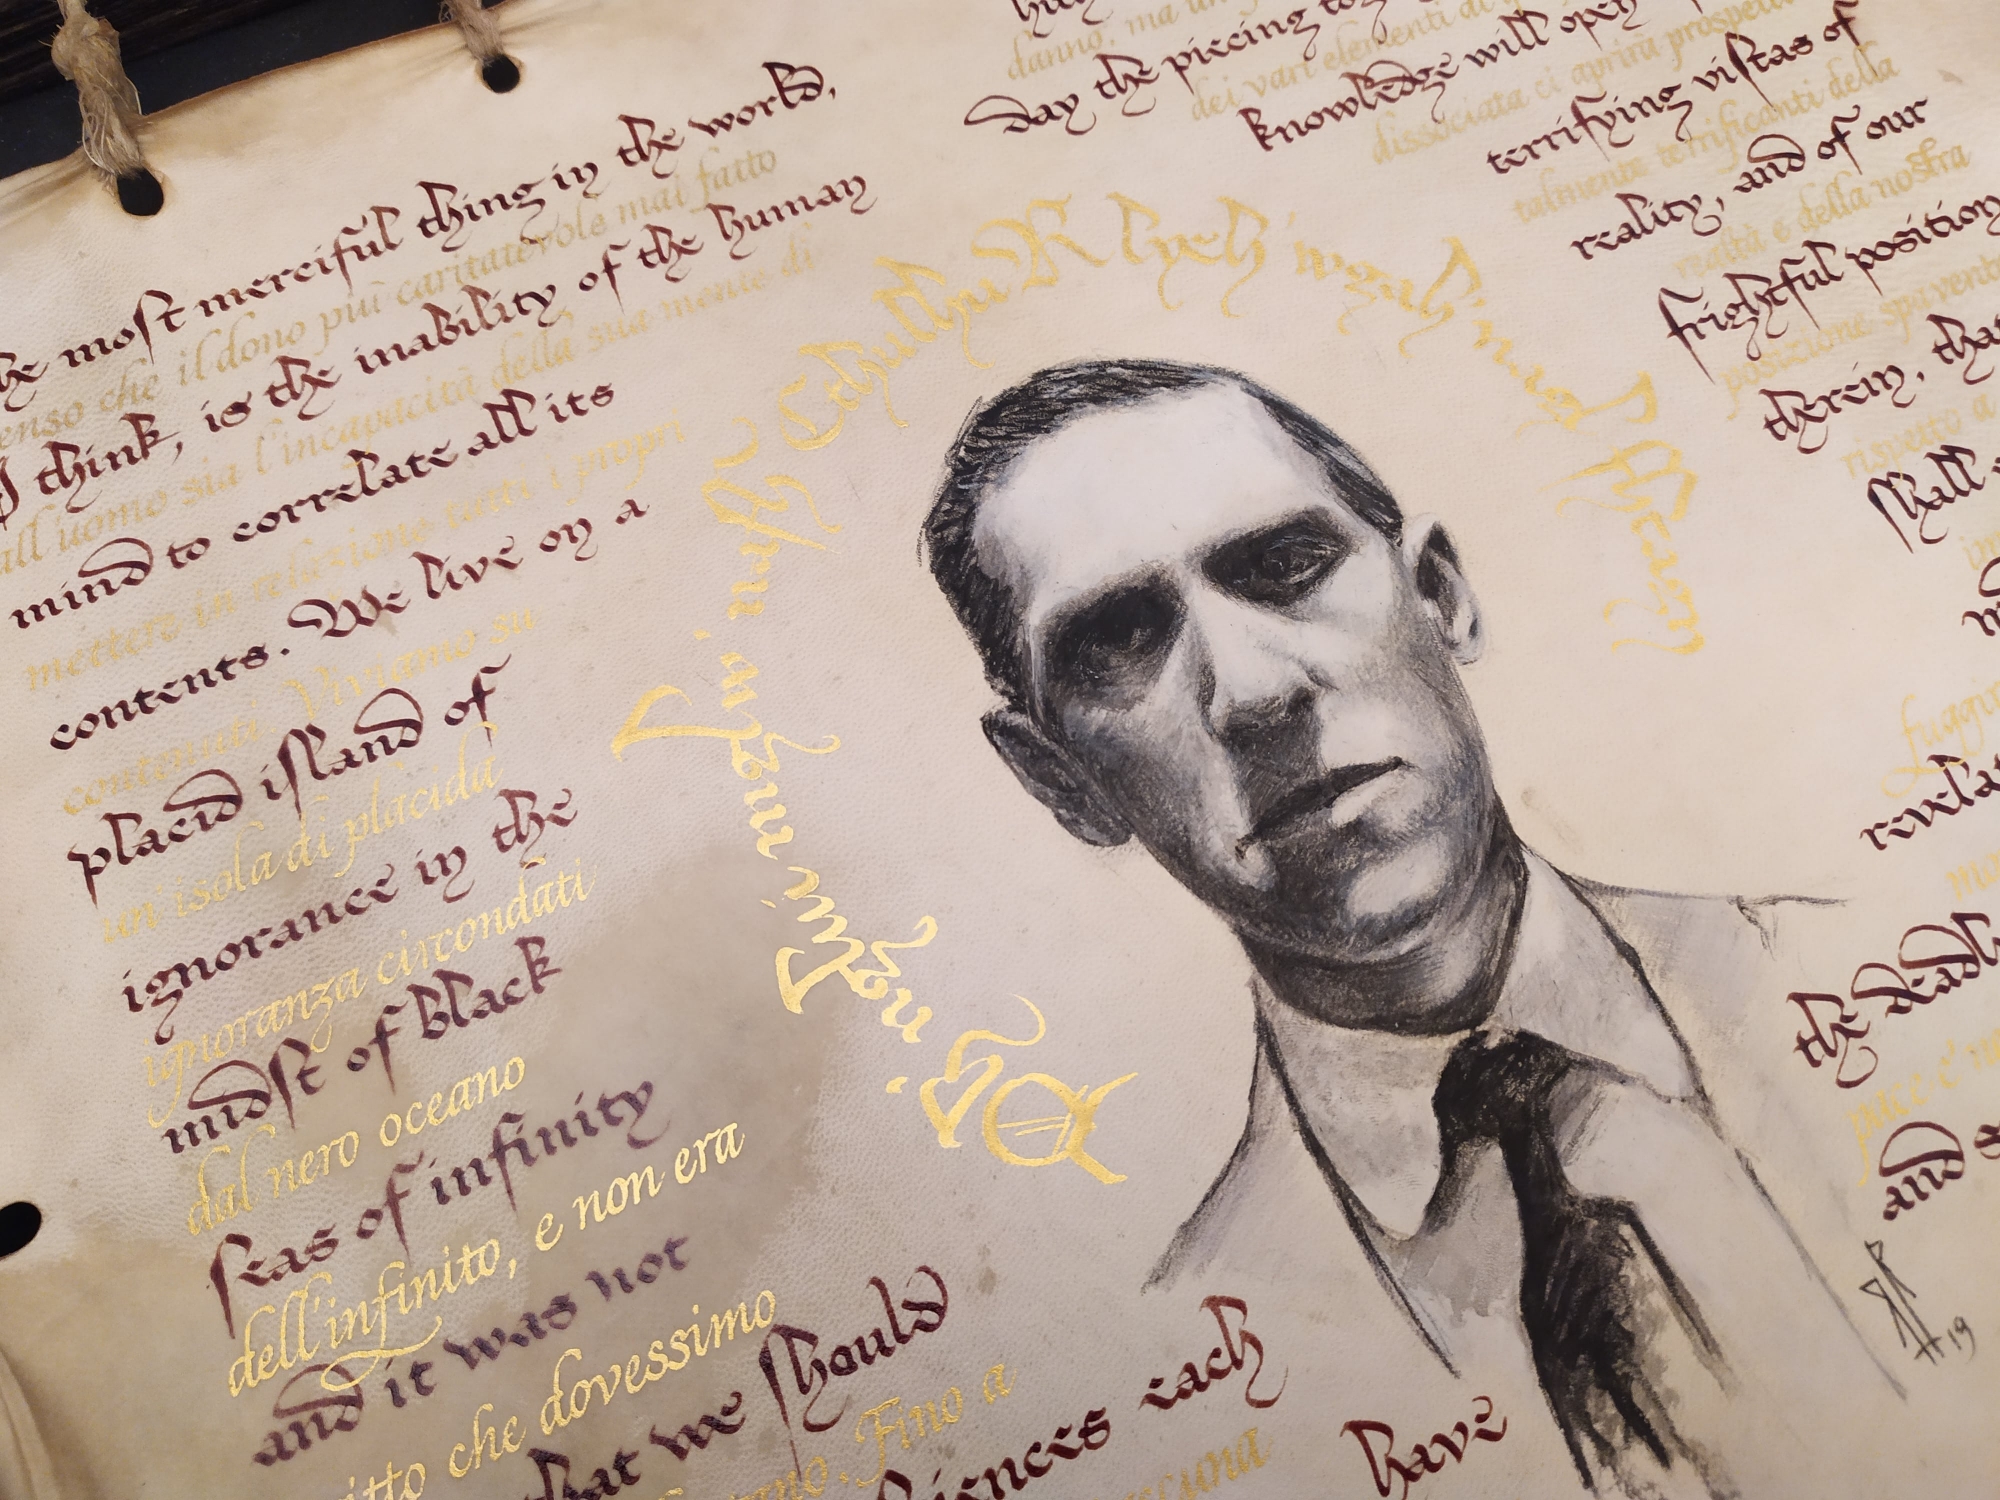 he most merciful thing in the world,
enso che il dono più caritatevole mai fatto
I think, is the inability of the human
all'uomo sia l'incapacità della sua mente di
mind to correlate all its
mettere in relazione tutti i propri
contents. We live on a
contenuti. Viviamo su
placid island of
un'isola di placida
ignorance in the
ignoranza circondati
midst of black
dal nero oceano
seas of infinity
dell'infinito, e non era
and it was not
itto che dovessimo
that we should
Fino a
sciences each
scuna
have
danno, ma un
day the piecing to
dei vari elementi di
knowledge will open
dissociata ci aprirà prospett
terrifying vistas of
talmente terrificanti della
reality, and of our
realtà e della nostra
frightful position
posizione spavent
therein, tha
rispetto a
shall
fuggir
revelat
the deadl
pace e
and s
Ph'nglui mglw'nafh Cthulhu R'lyeh wgah'nagl fhtagn
19